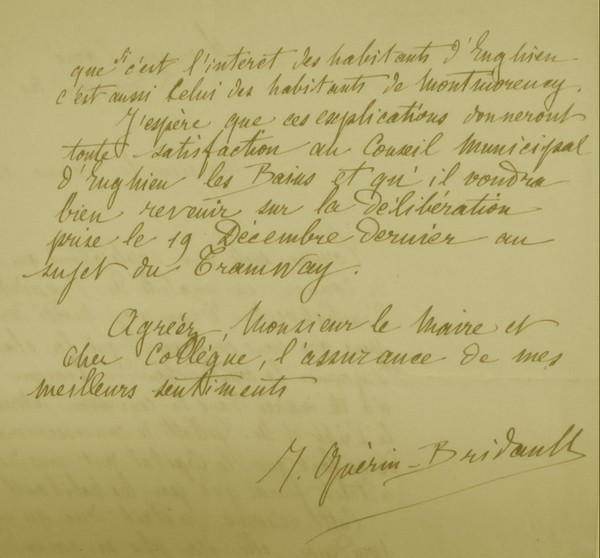 que si c'est l'intérêt des habitants d'Enghien
c'est aussi celui des habitants de Montmorency.
J'espère que ces explications donneront
toute satisfaction au Conseil Municipal
d'Enghien les Bains et qu'il voudra
bien revenir sur la délibération
prise le 19 Décembre dernier au
sujet du Tramway.
Agréez, Monsieur le Maire et
cher Collègue, l'assurance de mes
meilleurs sentiments
J. Guérin-Bridault